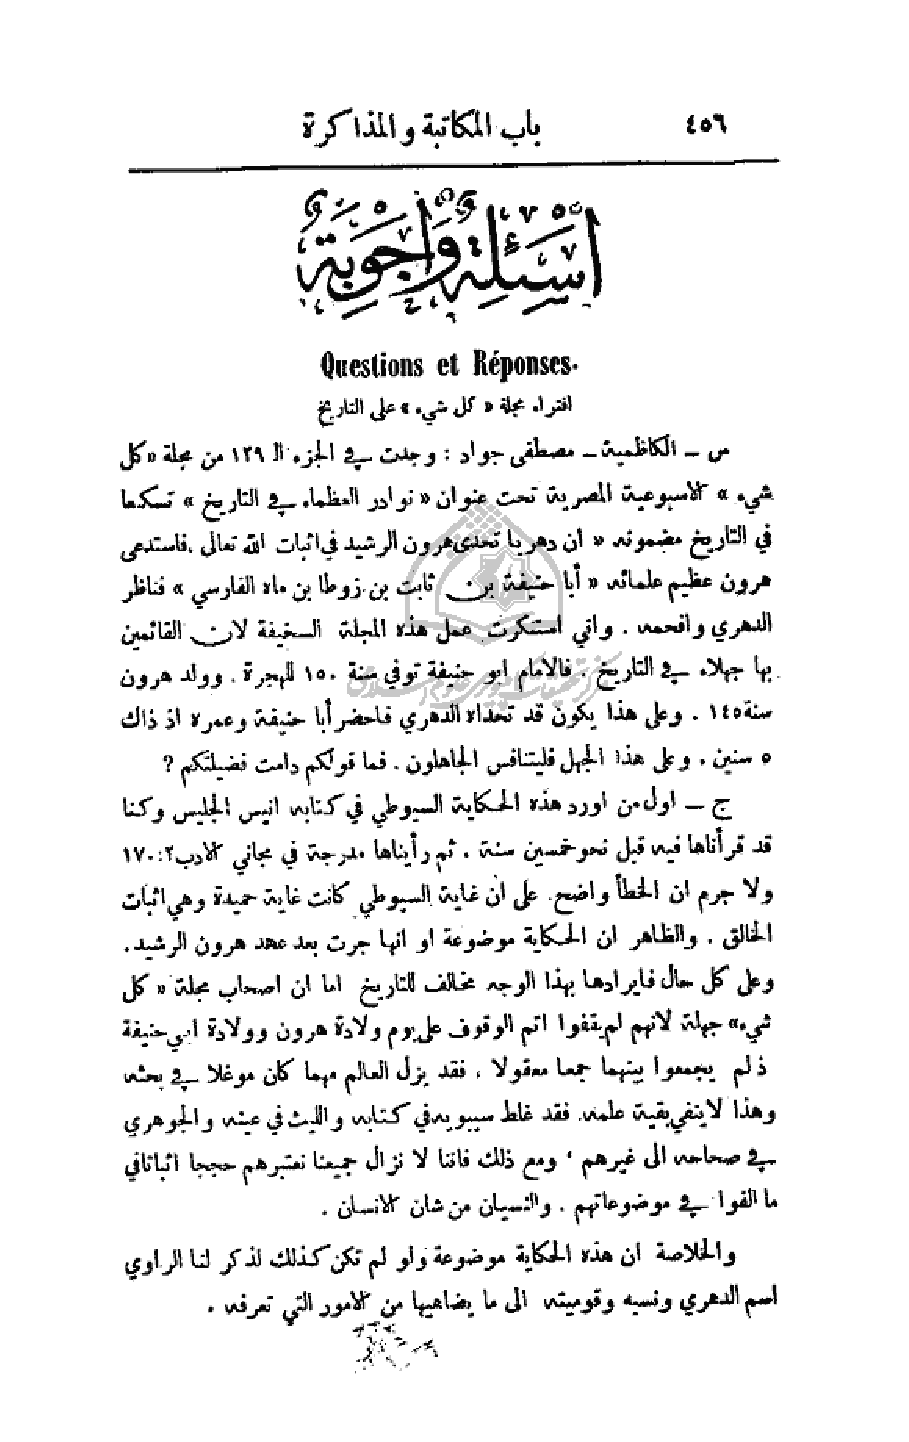 ٤٥٦ باب المكاتبة والمذاكرة
أَسْئِلَةٌ وَأَجْوِبَةٌ
Questions et Réponses.
افتراء مجلة « كل شيء » على التاريخ
س ـ الكاظمية ـ مصطفى جواد : وجدت في الجزء الـ ١٣٩ من مجلة « كل
شيء » الاسبوعية المصرية تحت عنوان « نوادر العظماء في التاريخ » تسكعا
في التاريخ مضمونه « ان دهريا تحدى هرون الرشيد في اثبات الله تعالى . فاستدعى
هرون عظيم علمائه « أبا حنيفة بن ثابت بن زوطا بن ماه الفارسي » فناظر
الدهري وافحمه . واني استنكرت عمل هذه المجلة السخيفة لان القائمين
بها جهلاء في التاريخ . فالامام ابو حنيفة توفي سنة ١٥٠ للهجرة . وولد هرون
سنة ١٤٥ . وعلى هذا يكون قد تحداه الدهري فاحضر أبا حنيفة وعمره اذ ذاك
٥ سنين . وعلى هذا الجهل فليتنافس الجاهلون . فما قولكم دامت فضيلتكم ؟
ج ـ اول من اورد هذه الحكاية السيوطي في كتابه انيس الجليس وكنا
قد قرأناها فيه قبل نحو خمسين سنة . ثم رأيناها مدرجة في مجاني الادب ٢ : ١٧٠
ولا جرم ان الخطأ واضح . على ان غاية السيوطي كانت غاية حميدة وهي اثبات
الخالق . والظاهر ان الحكاية موضوعة او انها جرت بعد عهد هرون الرشيد .
وعلى كل حال فايرادها بهذا الوجه مخالف للتاريخ اما ان اصحاب مجلة « كل
شيء » جهلة لانهم لم يقفوا اتم الوقوف على يوم ولادة هرون وولادة ابي حنيفة
ذلم يجمعوا بينهما جمعا معقولا . فقد يزل العالم مهما كان موغلا في بحثه
وهذا لا ينفي بقية علمه . فقد غلط سيبويه في كتابه والليث في عينه والجوهري
في صحاحه الى غيرهم ' ومع ذلك فاننا لا نزال جميعنا نعتبرهم حججا اثباتا في
ما الفوا في موضوعاتهم . والنسيان من شان الانسان .
والخلاصة ان هذه الحكاية موضوعة ولو لم تكن كذلك لذكر لنا الراوي
اسم الدهري ونسبه وقوميته الى ما يضاهيها من الامور التي تعرفه .